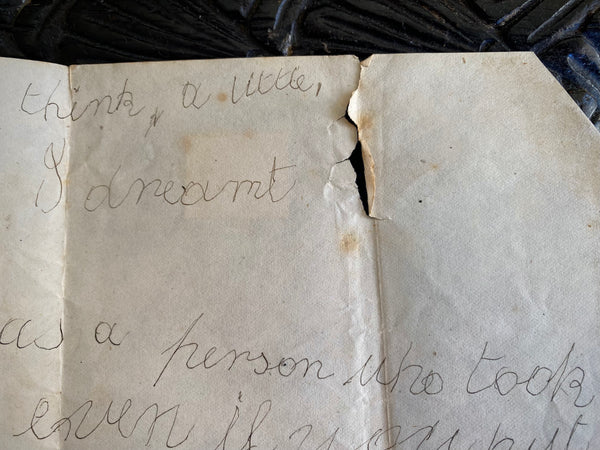 think, a little,
I dreamt
as a person who took
even if you put